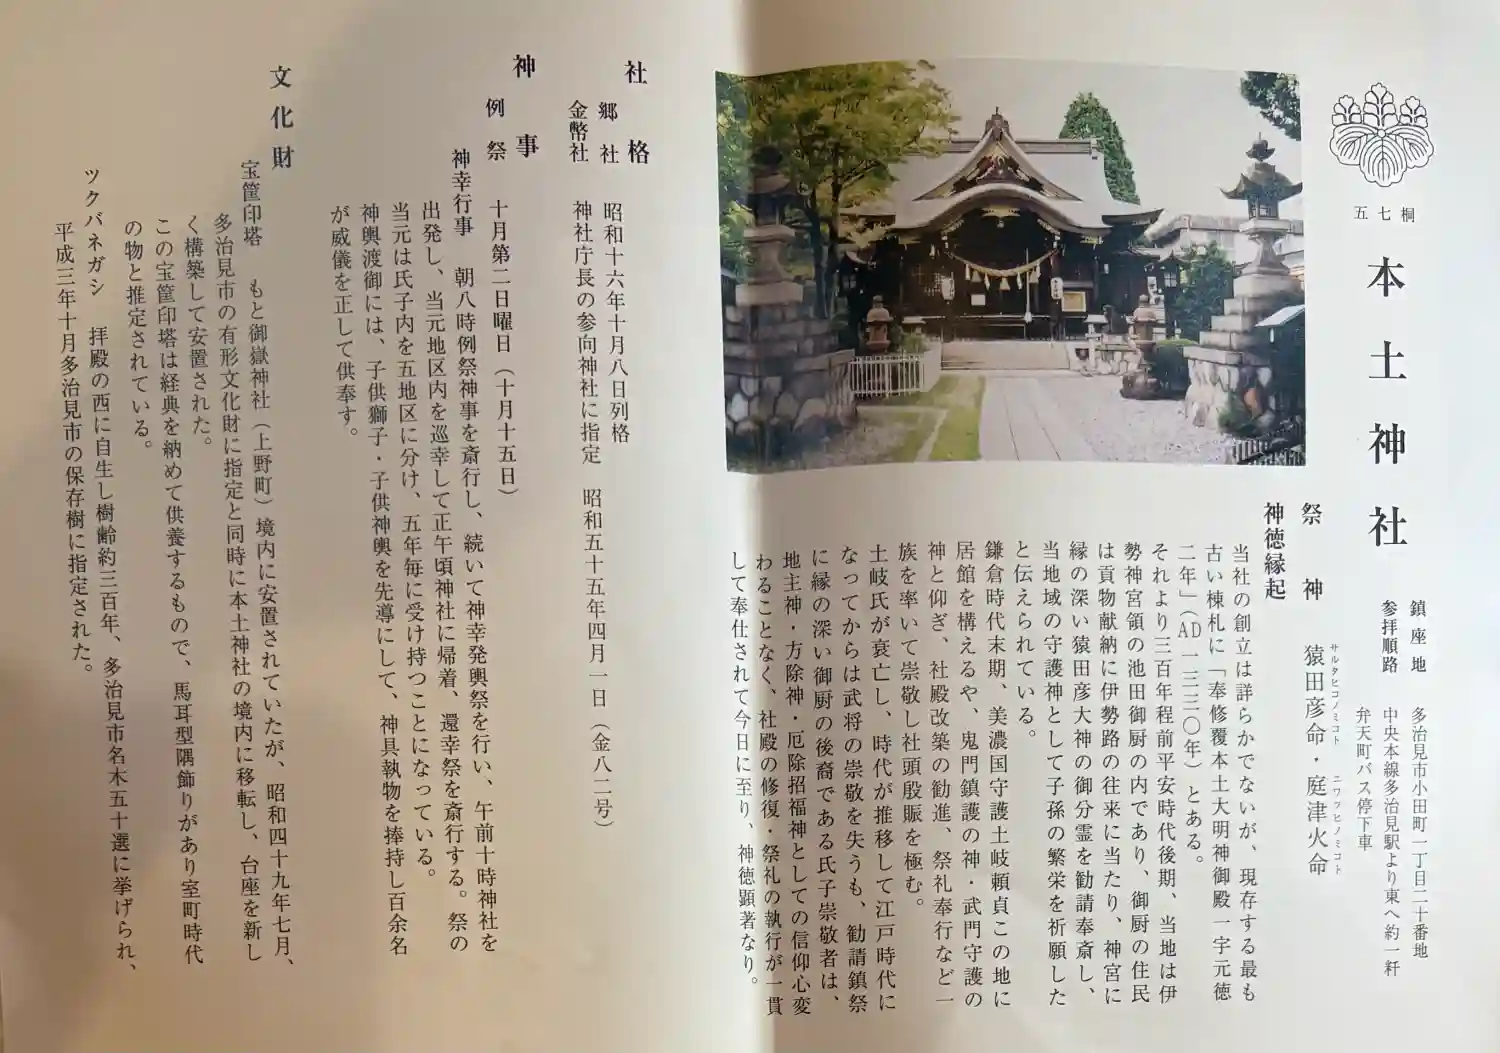 五七桐
本土神社
鎮座地　多治見市小田町一丁目二十番地
参拝順路　中央本線多治見駅より東へ約一粁
弁天町バス停下車
祭神　猿田彦命・庭津火命
サルタヒコノミコト　ニワツヒノミコト
神徳縁起
当社の創立は詳らかでないが、現存する最も
古い棟札に「奉修覆本土大明神御殿一宇元徳
二年」（AD一三三〇年）とある。
それより三百年程前平安時代後期、当地は伊
勢神宮領の池田御厨の内であり、御厨の住民
は貢物献納に伊勢路の往来に当たり、神宮に
縁の深い猿田彦大神の御分霊を勧請奉斎し、
当地域の守護神として子孫の繁栄を祈願した
と伝えられている。
鎌倉時代末期、美濃国守護土岐頼貞この地に
居館を構えるや、鬼門鎮護の神・武門守護の
神と仰ぎ、社殿改築の勧進、祭礼奉行など一
族を率いて崇敬し社頭殷賑を極む。
土岐氏が衰亡し、時代が推移して江戸時代に
なってからは武将の崇敬を失うも、勧請鎮祭
に縁の深い御厨の後裔である氏子崇敬者は、
地主神・方除神・厄除招福神としての信仰心変
わることなく、社殿の修復・祭礼の執行が一貫
して奉仕されて今日に至り、神徳顕著なり。
社格
郷社　昭和十六年十月八日列格
金幣社　神社庁長の参向神社に指定　昭和五十五年四月一日（金八二号）
神事
例祭　十月第二日曜日（十月十五日）
神幸行事　朝八時例祭神事を斎行し、続いて神幸発輿祭を行い、午前十時神社を
出発し、当元地区内を巡幸して正午頃神社に帰着、還幸祭を斎行する。祭の
当元は氏子内を五地区に分け、五年毎に受け持つことになっている。
神輿渡御には、子供獅子・子供神輿を先導にして、神具執物を捧持し百余名
が威儀を正して供奉す。
文化財
宝篋印塔　もと御嶽神社（上野町）境内に安置されていたが、昭和四十九年七月、
多治見市の有形文化財に指定と同時に本土神社の境内に移転し、台座を新し
く構築して安置された。
この宝篋印塔は経典を納めて供養するもので、馬耳型隅飾りがあり室町時代
の物と推定されている。
ツクバネガシ　拝殿の西に自生し樹齢約三百年、多治見市名木五十選に挙げられ、
平成三年十月多治見市の保存樹に指定された。